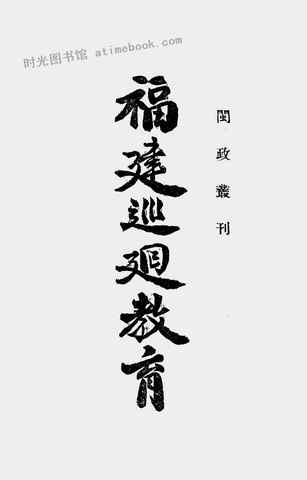 时光图书馆 atimebook.com
閩政叢刊
福建巡迴教育